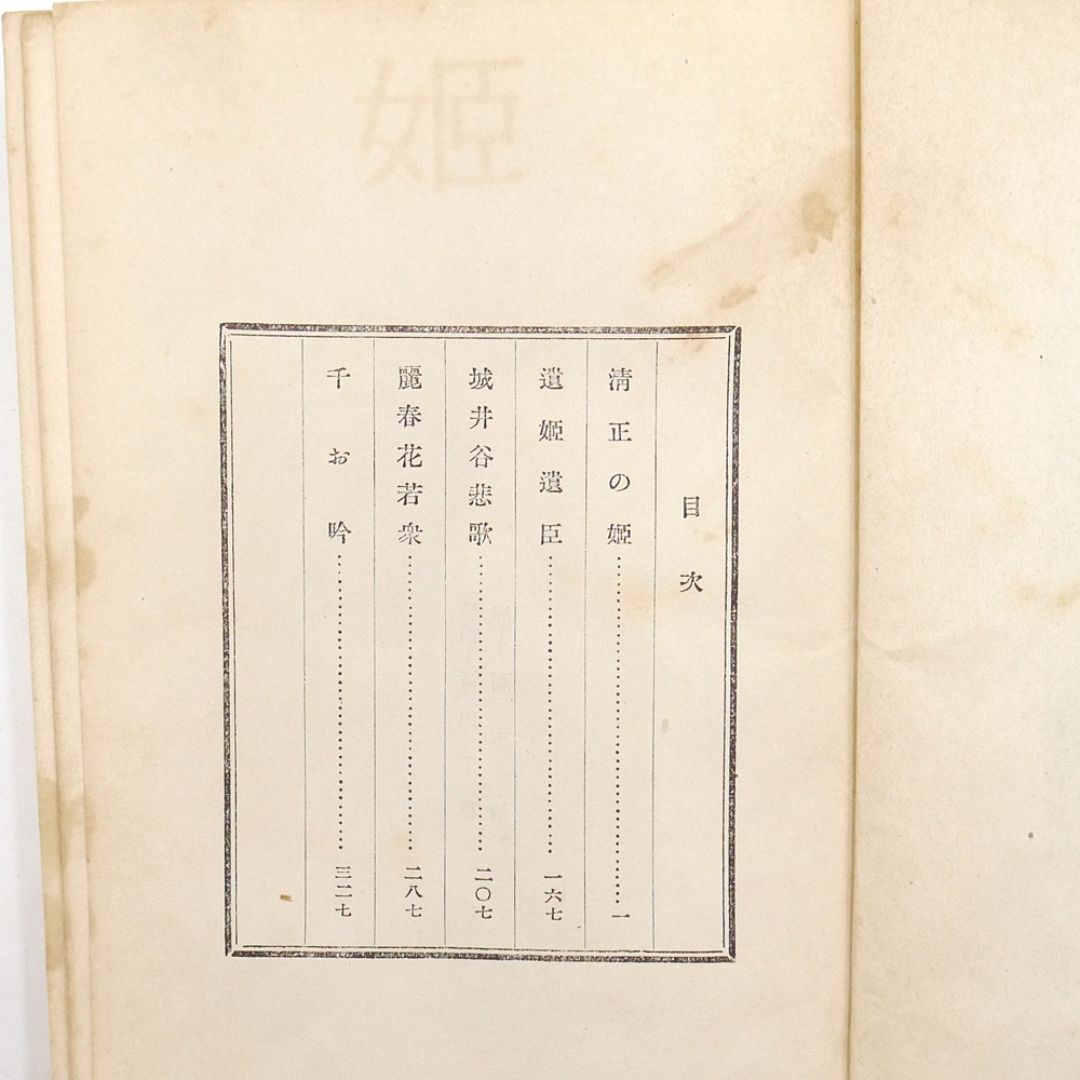 姫
目次
清正の姫……一
遺姫遺臣……一六七
城井谷悲歌……二〇七
麗春花若衆……二八七
千お吟……三二七